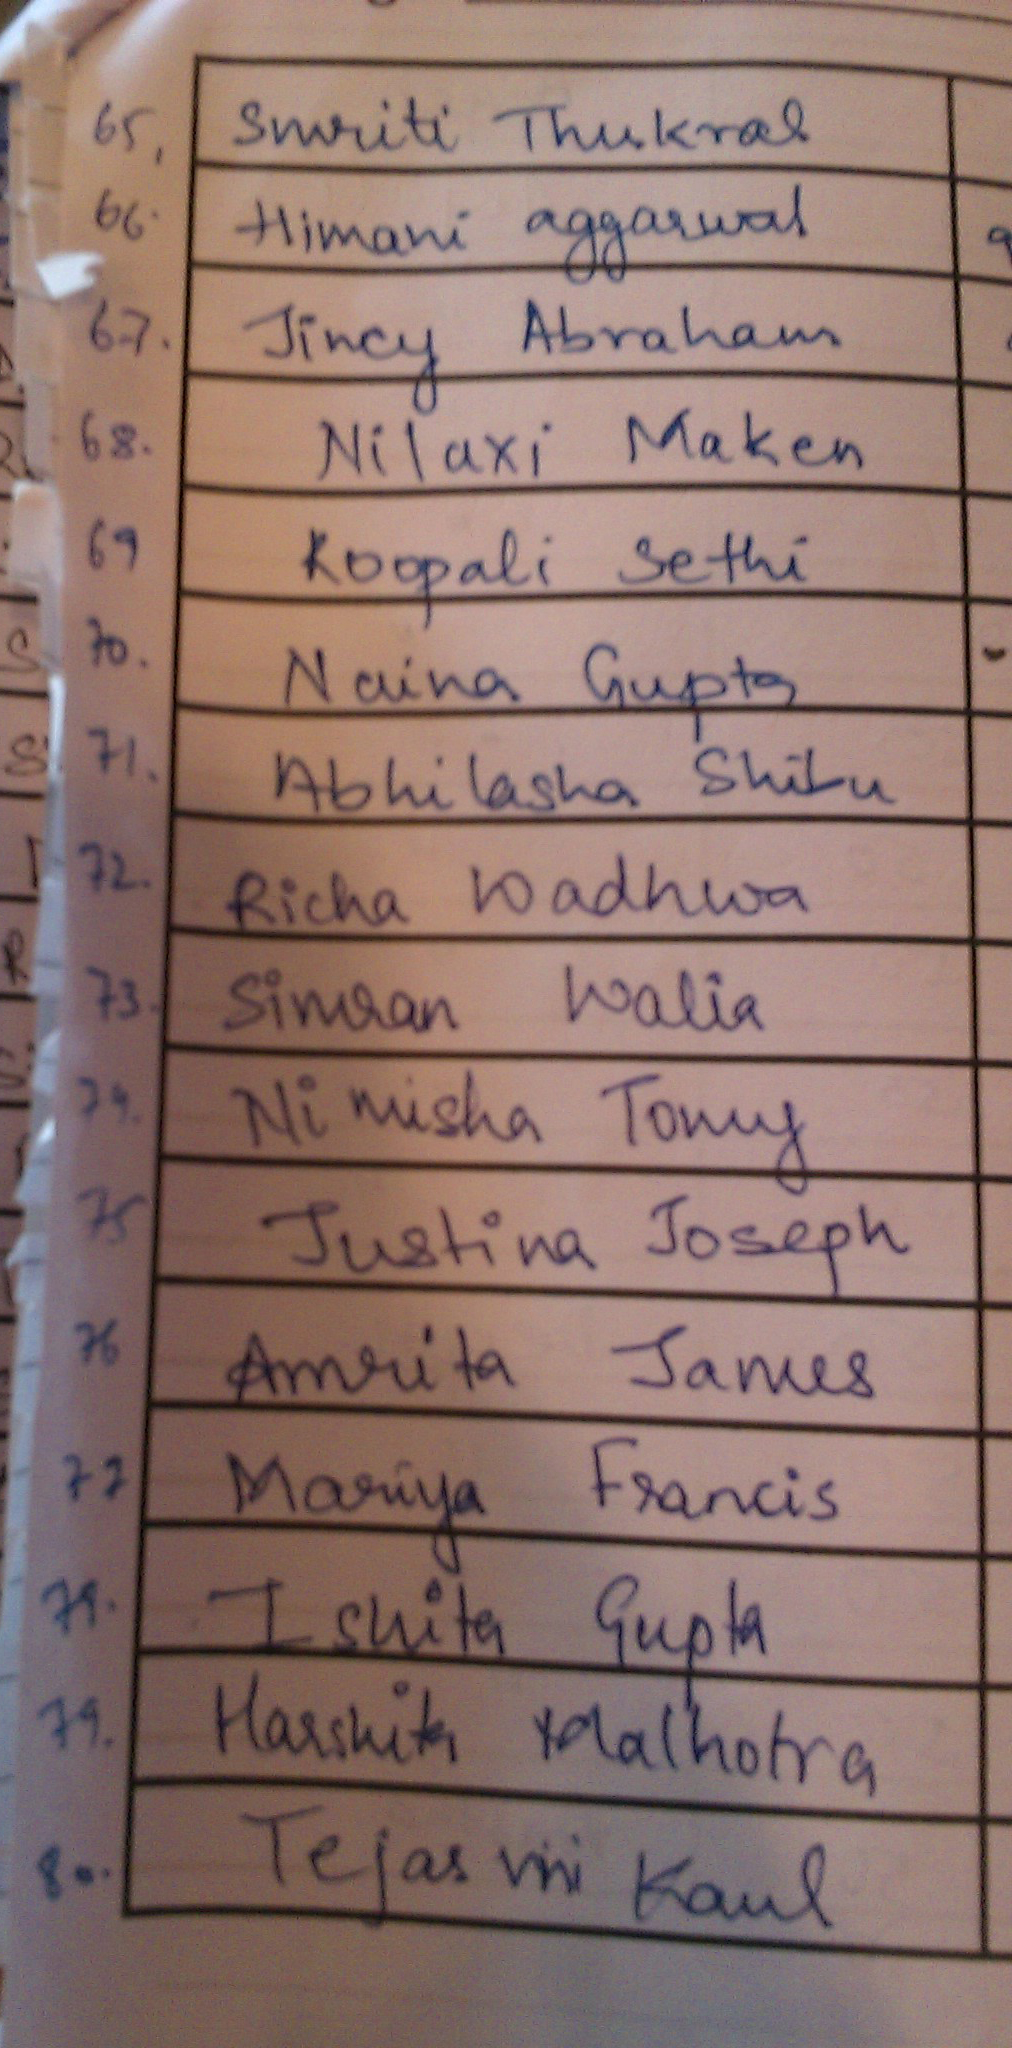 65, Smriti Thukral
66. Himani aggarwal
67. Jincy Abraham
68. Nilaxi Maken
69 Roopali Sethi
70. Naina Gupta
71. Abhilasha Shibu
72. Richa Wadhwa
73. Simran Walia
74. Nimisha Tomy
75 Justina Joseph
76 Amrita James
77 Mariya Francis
79. Ishita Gupta
79. Harshita Malhotra
80. Tejasvini Kaul